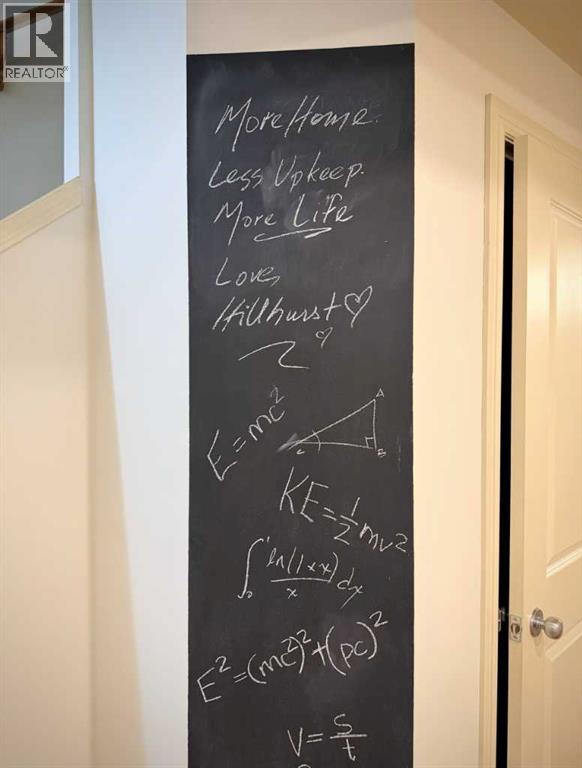 R
REALTOR®
More Home.
Less Upkeep.
More Life
Love,
Hillhurst♡
E=mc²
A
C
B
KE=½mv²
∫₀¹ ln(1+x)/x dx
E²=(mc²)²+(pc)²
V=S/t